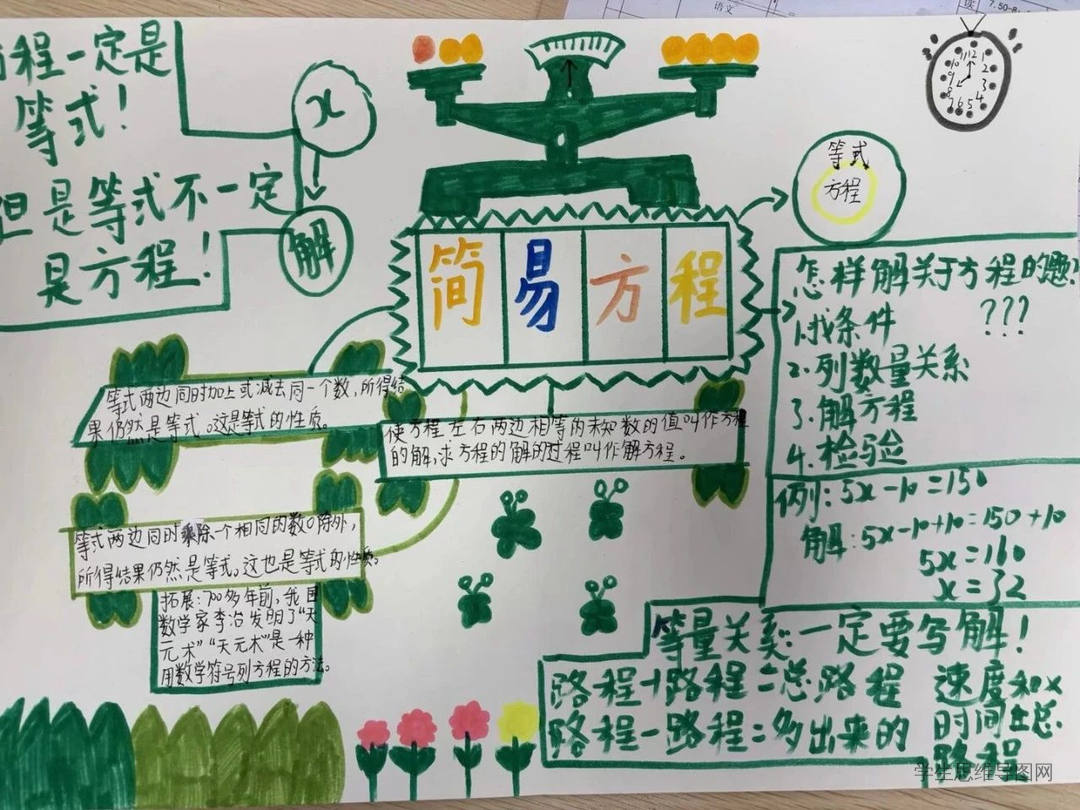 语文
7.50-8
方程一定是
等式!
但是等式不一定
是方程!
x
解
12 1 2 3 4 5 6 7 8 9 10 11
等式
方程
简易方程
怎样解关于方程的题?
???
1.找条件
2.列数量关系
3.解方程
4.检验
等式两边同时加上或减去同一个数,所得结
果仍然是等式。这是等式的性质。
使方程左右两边相等的未知数的值叫作方程
的解,求方程的解的过程叫作解方程。
例:5x-10=150
解:5x-10+10=150+10
5x=160
x=32
等式两边同时乘除一个相同的数0除外,
所得结果仍然是等式。这也是等式的性质。
拓展:700多年前,我国
数学家李冶发明了“天
元术”“天元术”是一种
用数学符号列方程的方法。
等量关系:一定要写解!
路程+路程=总路程
路程-路程=多出来的
速度和×
时间=总
路程
学生思维导图网